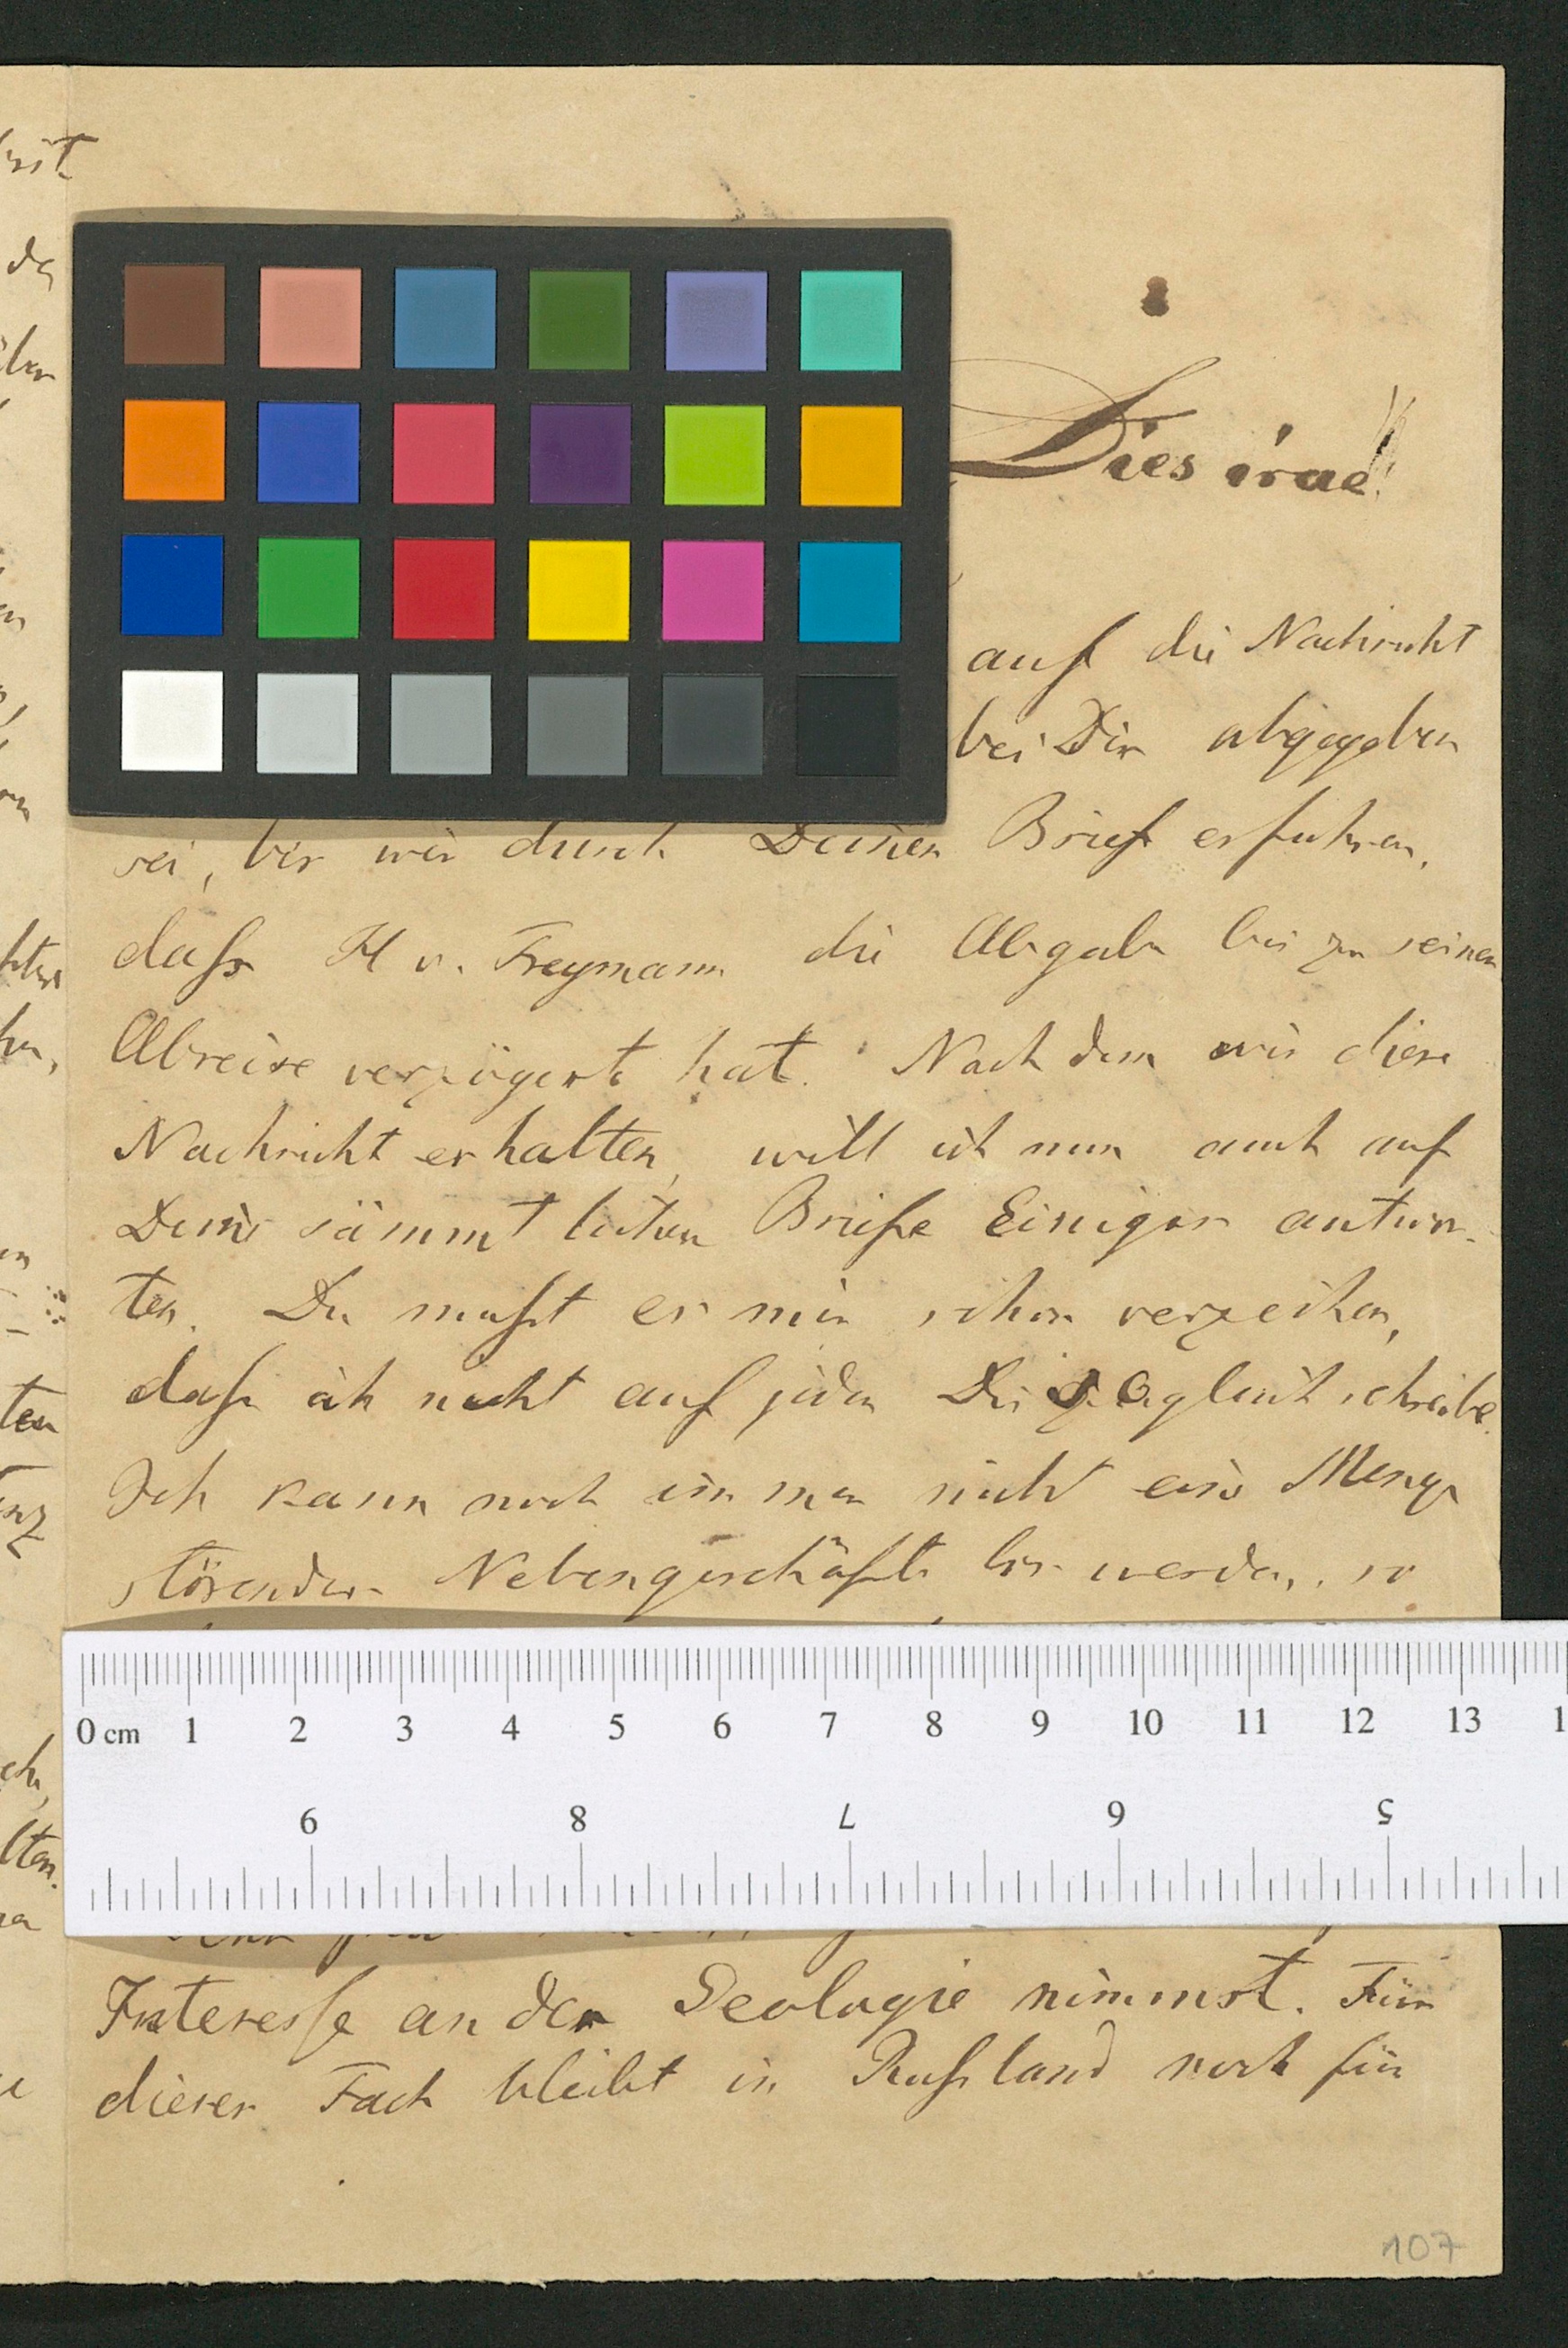 Dies irae!
auf die Nachricht
bei Dir abgegeben
sei, bis wir durch Deinen Brief erfuhren,
dass H v. Freymann die Abgabe bis zu seiner
Abreise verzögert hat. Nachdem wir diese
Nachricht erhalten, will ich nun auch auf
Deine sämmtlichen Briefe Einiges antwor-
ten. Du musst es mir schon verzeihen,
dass ich nicht auf jeden gleich schreibe.
Ich kann noch immer nicht eine Menge
störender Nebengeschäfte los werden, so
0 cm 1 2 3 4 5 6 7 8 9 10 11 12 13 1
9 8 7 6 5
Interesse an der Geologie nimmst. Für
dieses Fach bleibt in Russland noch für
107